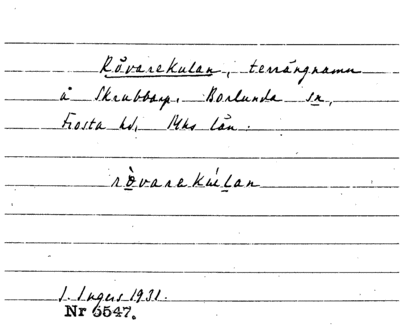 Rövarekulan, terrängnamn
å Skrubbarp, Borlunda sn,
Frosta hd, Mhs län.
rò̱varekúḻan
I. Ingers 1931.
Nr 6547.